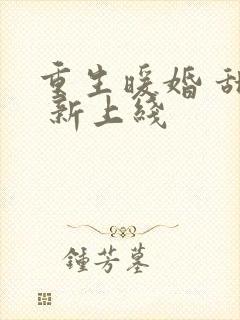 重生暖婚 甜
新上线
鍾芳墓